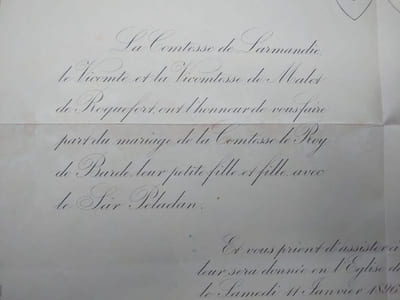 La Comtesse de Larmandie,
le Vicomte et la Vicomtesse de Malet
de Roquefort, ont l'honneur de vous faire
part du mariage de la Comtesse le Roy
de Barde, leur petite fille et fille, avec
le Sâr Peladan.
Et vous prient d'assister à
leur sera donnée en l'Eglise d
le Samedi 11 Janvier 1896